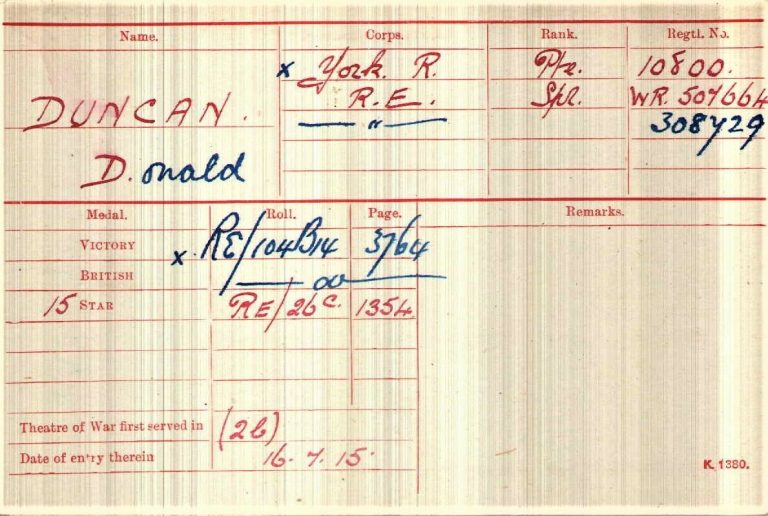 Name. Corps. Rank. Regtl. No.
x York. R. Pte. 10800.
DUNCAN. R.E. Spr. WR. 507664
— " — 308729
D.onald
Medal. Roll. Page. Remarks.
VICTORY x RE/104B14 3764
BRITISH — do —
15 STAR RE/26C. 1354
Theatre of War first served in (2b)
Date of entry therein 16.7.15.
K. 1380.